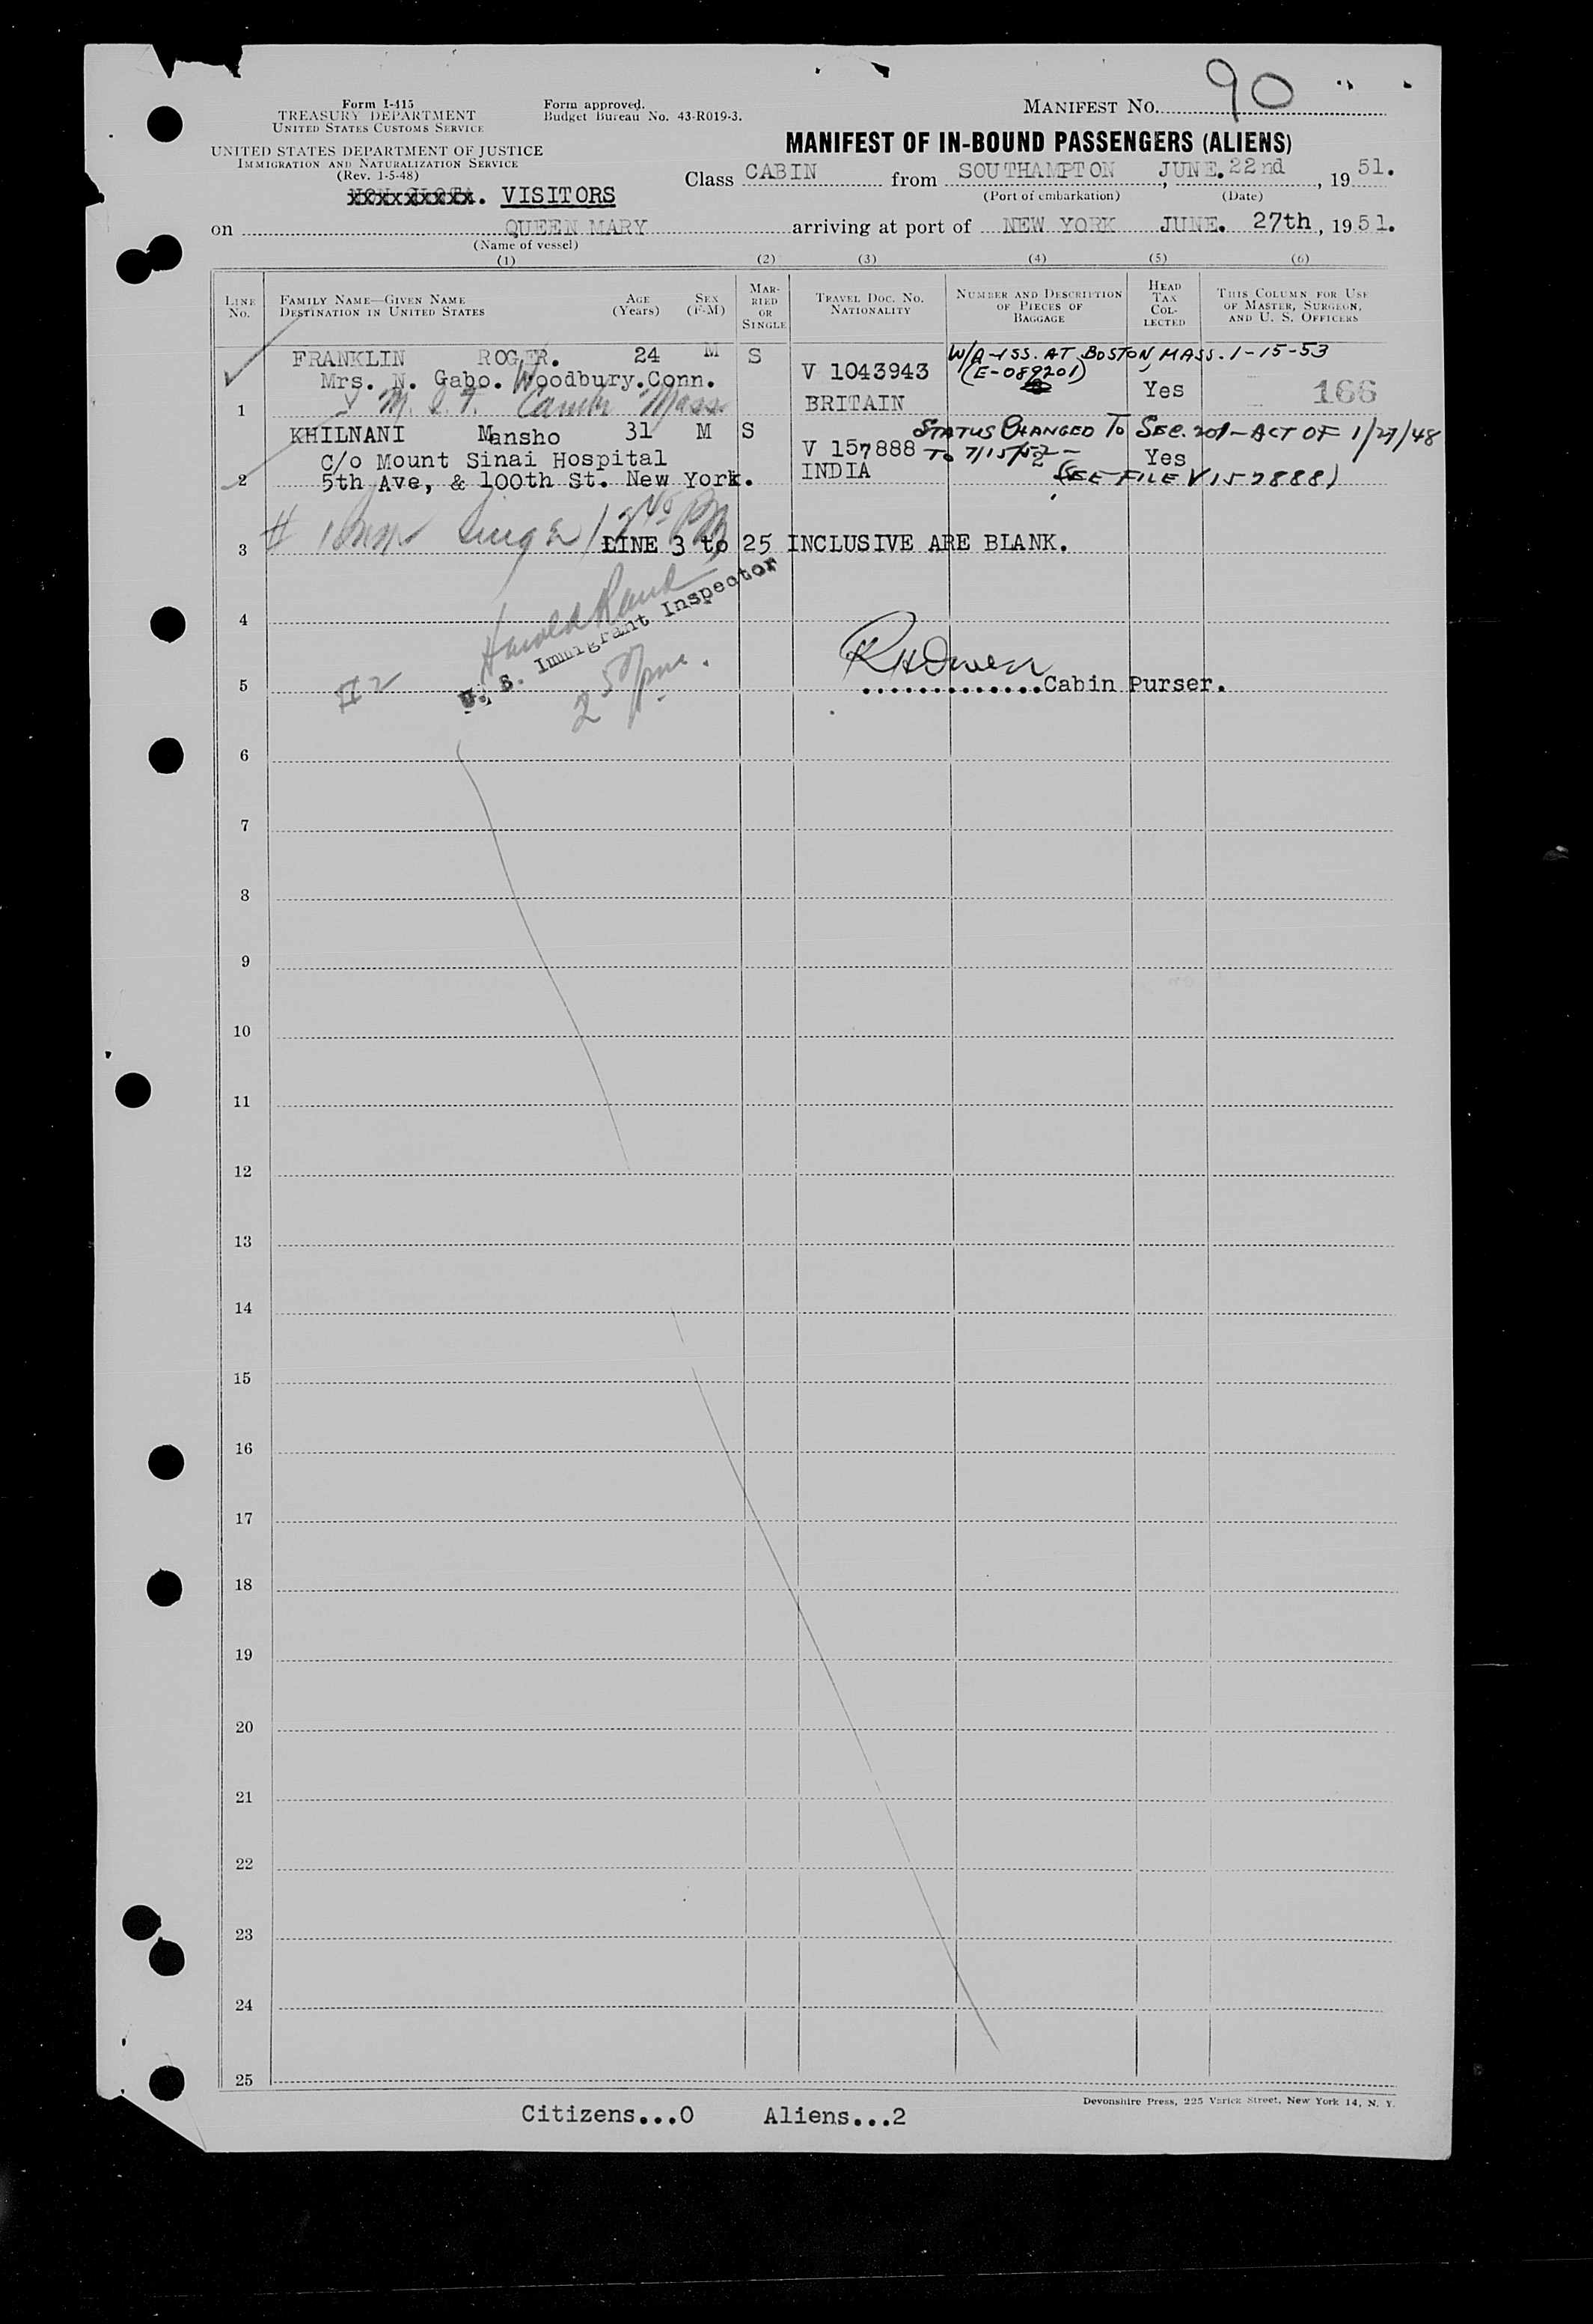 Form I-415
TREASURY DEPARTMENT
UNITED STATES CUSTOMS SERVICE
UNITED STATES DEPARTMENT OF JUSTICE
IMMIGRATION AND NATURALIZATION SERVICE
(Rev. 1-5-48)
Form approved.
Budget Bureau No. 43-R019-3.
MANIFEST NO. 90
MANIFEST OF IN-BOUND PASSENGERS (ALIENS)
VISITORS
Class CABIN from SOUTHAMPTON, JUNE. 22nd, 1951.
(Port of embarkation) (Date)
on QUEEN MARY arriving at port of NEW YORK JUNE. 27th, 1951.
(Name of vessel)
(1) (2) (3) (4) (5) (6)
LINE NO.
FAMILY NAME—GIVEN NAME
DESTINATION IN UNITED STATES
AGE (Years)
SEX (F-M)
MARRIED OR SINGLE
TRAVEL DOC. NO.
NATIONALITY
NUMBER AND DESCRIPTION OF PIECES OF BAGGAGE
HEAD TAX COLLECTED
THIS COLUMN FOR USE OF MASTER, SURGEON, AND U. S. OFFICERS
W/A-ISS. AT BOSTON, MASS. 1-15-53
(E-089201)
FRANKLIN ROGER. 24 M S
Mrs. N. Gabo. Woodbury.Conn. V 1043943 Yes 166
1 M. I. T. Camb Mass BRITAIN
KHILNANI Mansho 31 M S STATUS CHANGED TO SEC. 201-ACT OF 1/27/48
C/o Mount Sinai Hospital V 157888 TO 7/15/52- Yes
2 5th Ave, & 100th St. New York. INDIA (SEE FILE V 157888)
3 LINE 3 to 25 INCLUSIVE ARE BLANK.
Harold Rand
U. S. Immigrant Inspector
2 50 pm.
4
RHOwen
5 Cabin Purser.
6
7
8
9
10
11
12
13
14
15
16
17
18
19
20
21
22
23
24
25
Citizens...0 Aliens...2
Devonshire Press, 225 Varick Street, New York 14, N. Y.